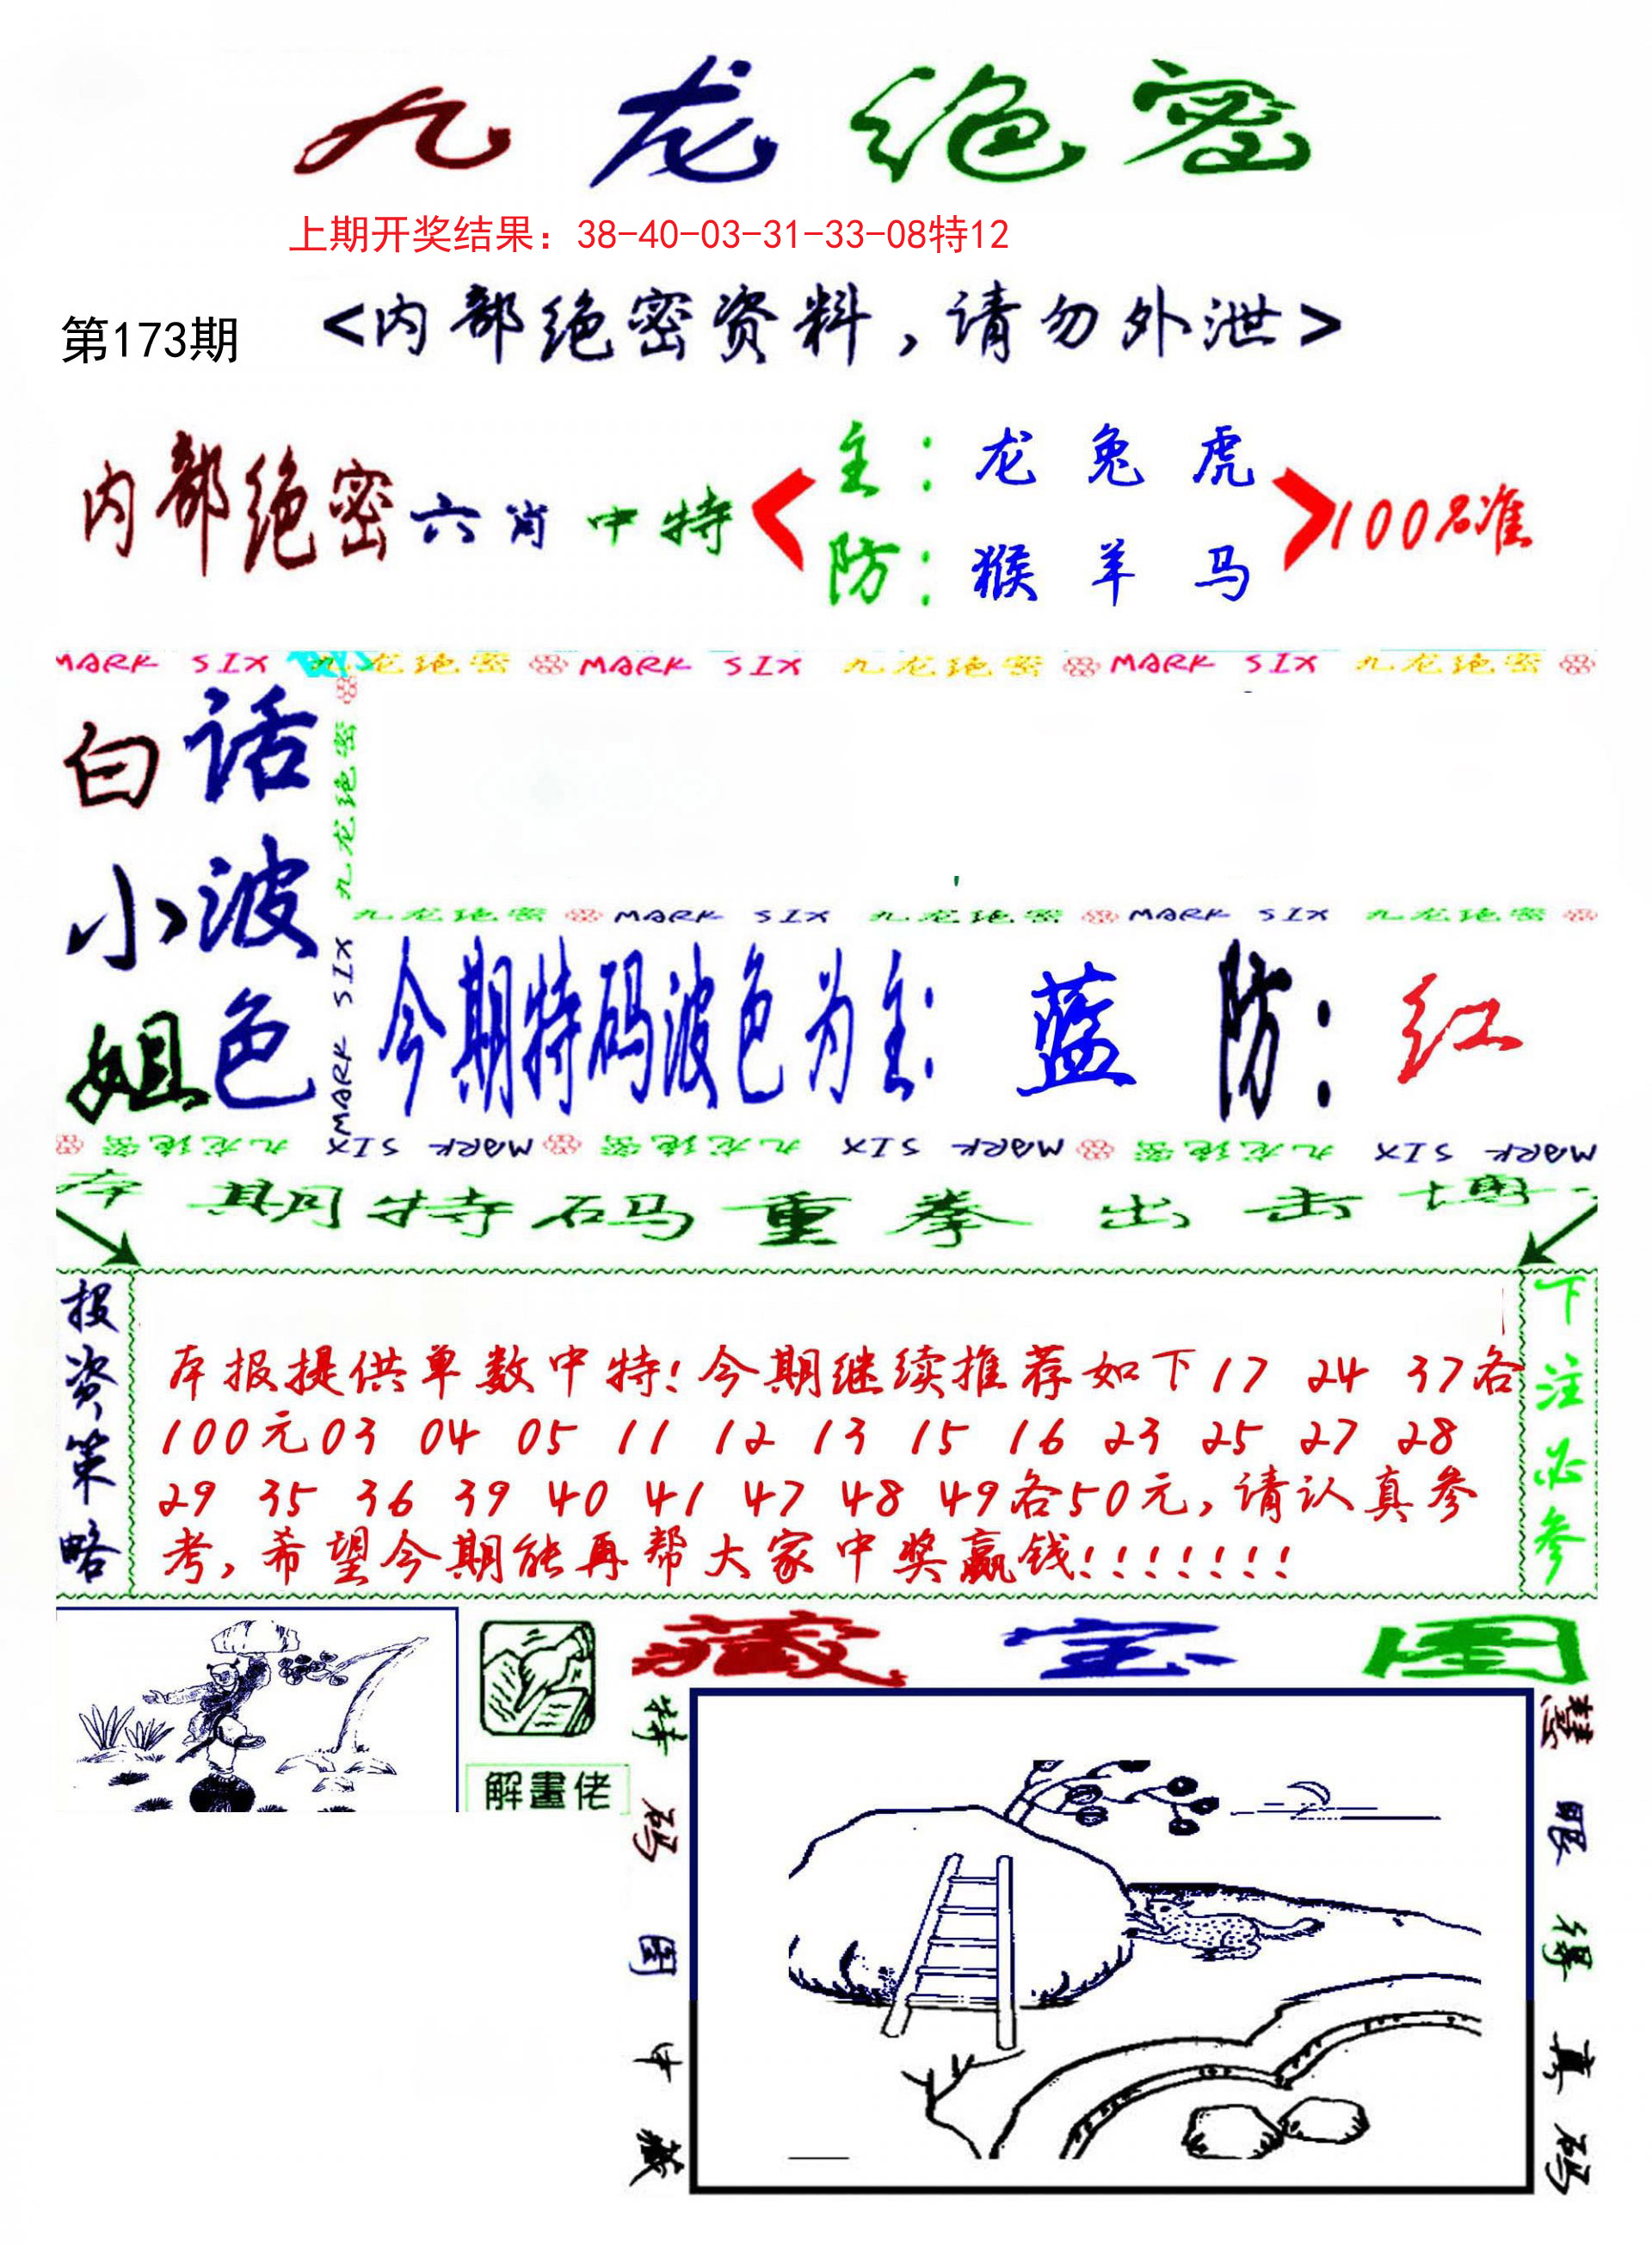 九龙绝密
上期开奖结果：38-40-03-31-33-08特12
第173期
<内部绝密资料，请勿外泄>
内部绝密六肖中特
主：龙 兔 虎
防：猴 羊 马
100%准
MARK SIX 九龙绝密 MARK SIX 九龙绝密 MARK SIX 九龙绝密
白小姐
话波色
九龙绝密
MARK SIX
九龙绝密 MARK SIX 九龙绝密 MARK SIX 九龙绝密
今期特码波色为主：蓝 防：红
九龙绝密 MARK SIX 九龙绝密 MARK SIX 九龙绝密 MARK SIX
本期特码重拳出击博
投资策略
本报提供单数中特!今期继续推荐如下17 24 37各
100元03 04 05 11 12 13 15 16 23 25 27 28
29 35 36 39 40 41 47 48 49各50元,请认真参
考,希望今期能再帮大家中奖赢钱!!!!!!!
下注必参
解畫佬
藏宝图
特码图中藏
慧眼得真码